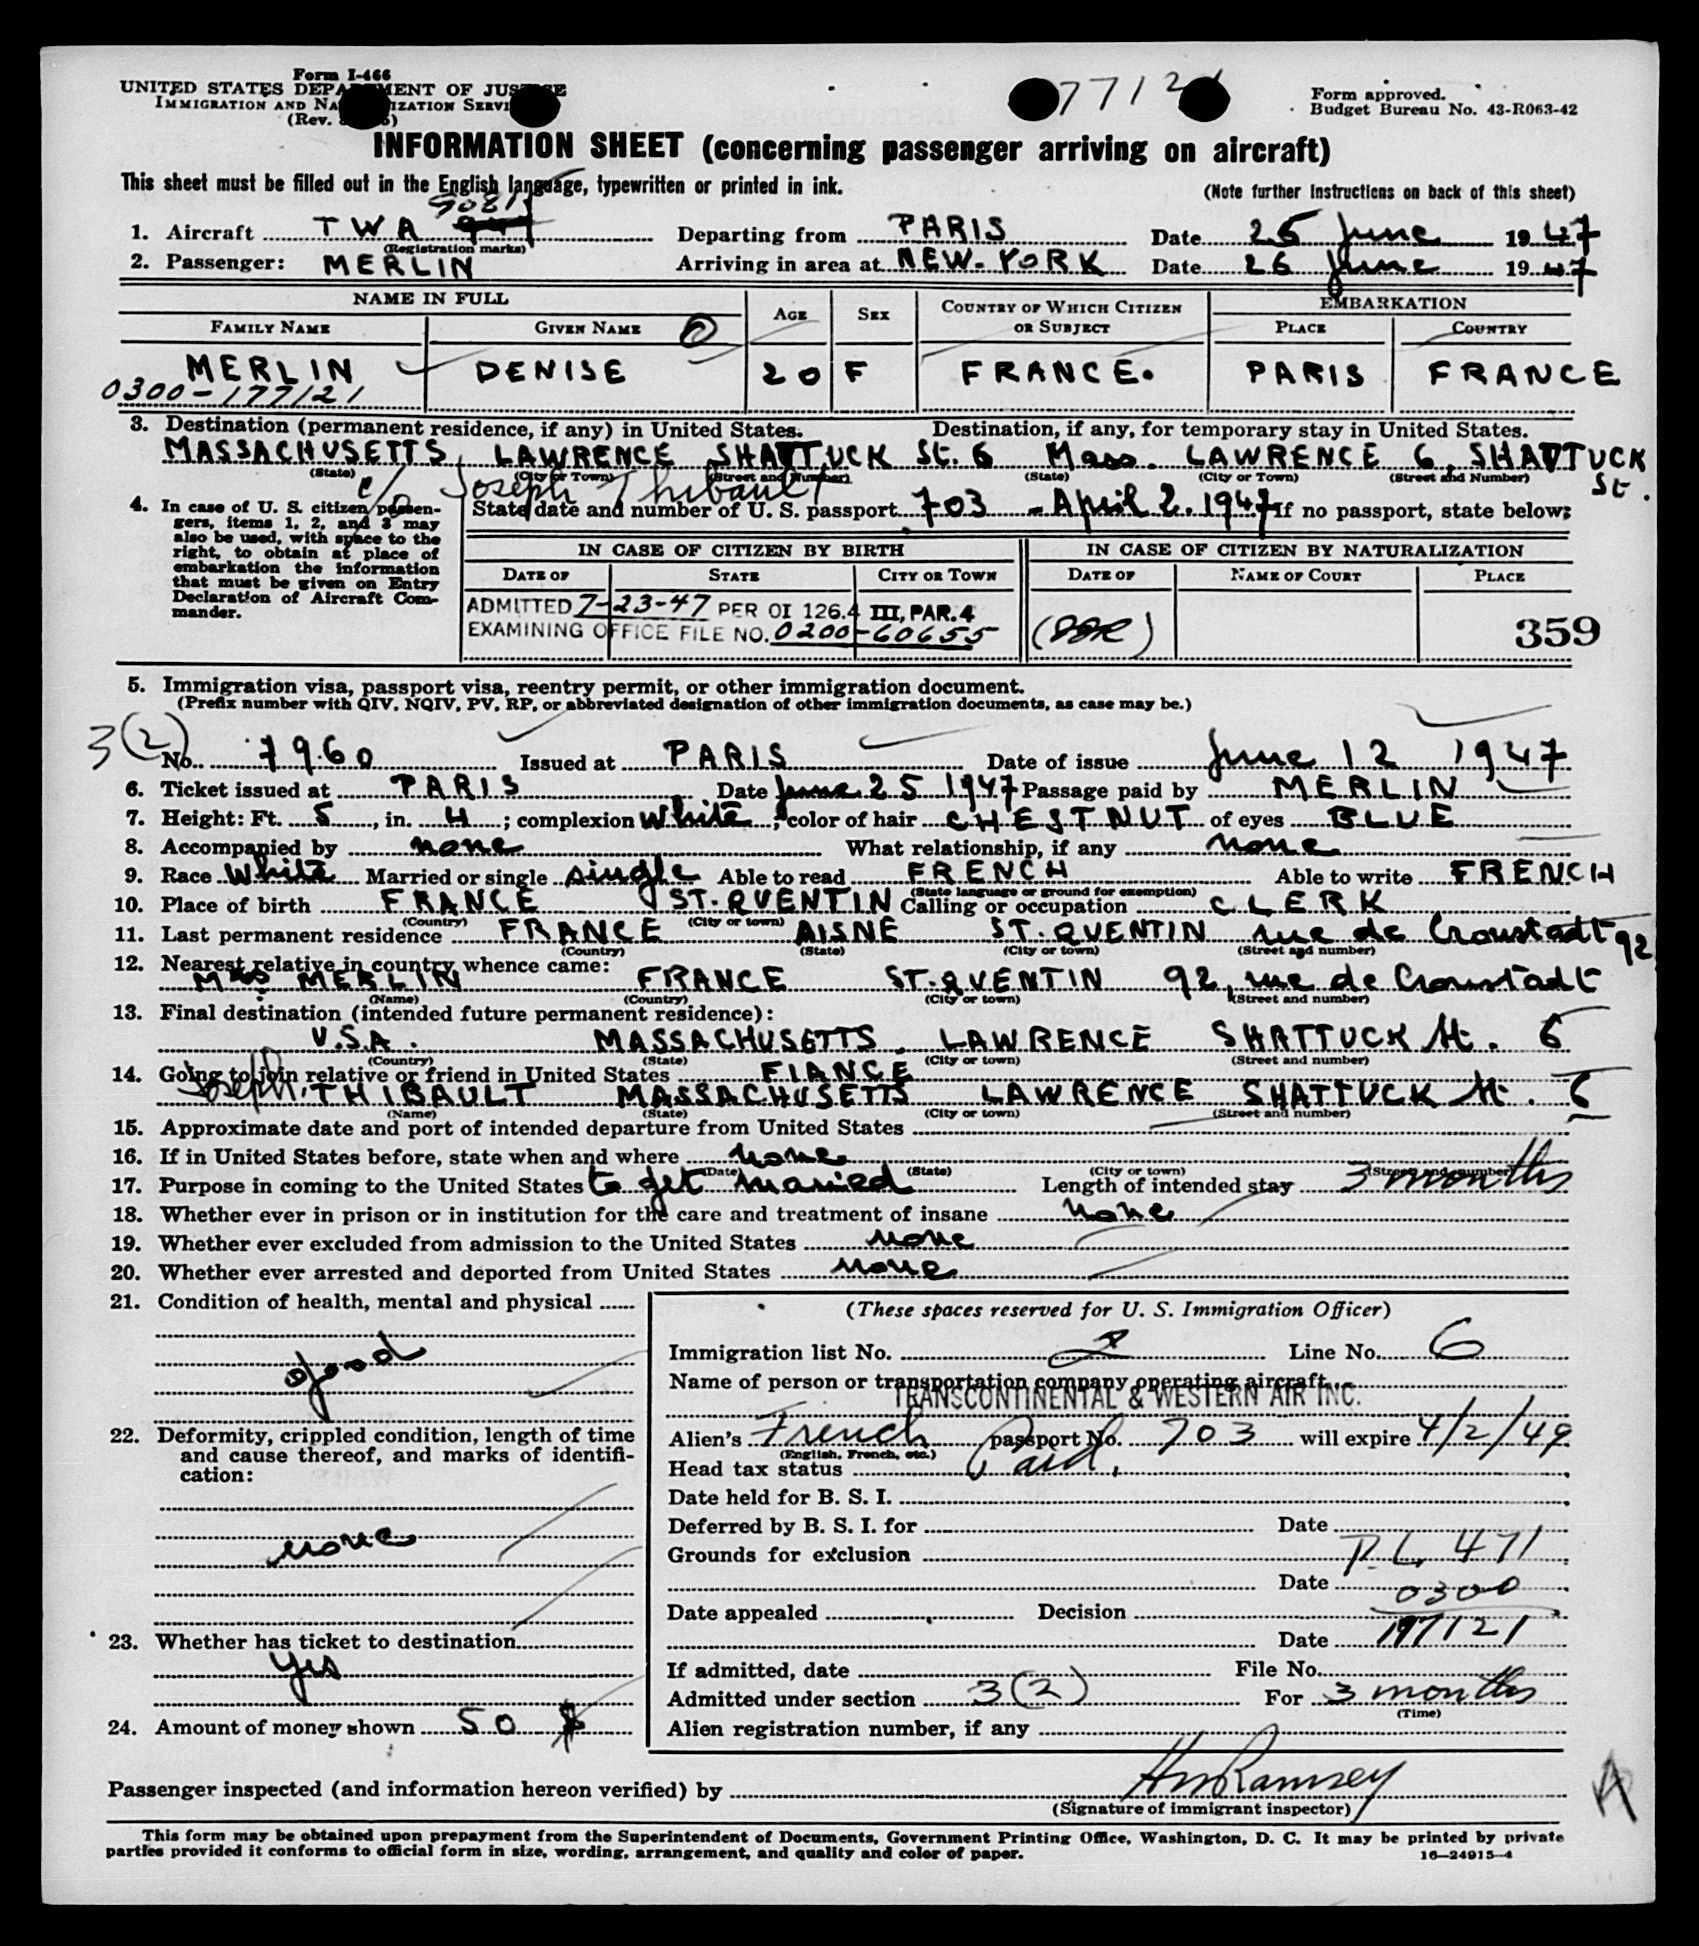 Form I-466
UNITED STATES DEPARTMENT OF JUSTICE
IMMIGRATION AND NATURALIZATION SERVICE
(Rev.
7712
Form approved.
Budget Bureau No. 43-R063-42
INFORMATION SHEET (concerning passenger arriving on aircraft)
This sheet must be filled out in the English language, typewritten or printed in ink.
(Note further instructions on back of this sheet)
1. Aircraft TWA Departing from PARIS Date 25 June 1947
(Registration marks)
2. Passenger: MERLIN Arriving in area at NEW-YORK Date 26 June 1947
NAME IN FULL AGE SEX COUNTRY OF WHICH CITIZEN OR SUBJECT EMBARKATION
FAMILY NAME GIVEN NAME PLACE COUNTRY
MERLIN DENISE 20 F FRANCE. PARIS FRANCE
0300-177121
3. Destination (permanent residence, if any) in United States. Destination, if any, for temporary stay in United States.
MASSACHUSETTS, LAWRENCE SHATTUCK St. 6 Mass. LAWRENCE 6, SHATTUCK St.
(State) (City or Town) (Street and Number) (State) (City or Town) (Street and Number)
c/o Joseph Thibault
4. In case of U. S. citizen passengers, items 1, 2, and 3 may also be used, with space to the right, to obtain at place of embarkation the information that must be given on Entry Declaration of Aircraft Commander.
State date and number of U. S. passport 703 - April 2. 1947 If no passport, state below:
IN CASE OF CITIZEN BY BIRTH IN CASE OF CITIZEN BY NATURALIZATION
DATE OF STATE CITY OR TOWN DATE OF NAME OF COURT PLACE
ADMITTED 7-23-47 PER OI 126.4 III, PAR. 4
EXAMINING OFFICE FILE NO. 0200-60655
359
5. Immigration visa, passport visa, reentry permit, or other immigration document.
(Prefix number with QIV, NQIV, PV, RP, or abbreviated designation of other immigration documents, as case may be.)
3(2)
No. 7960 Issued at PARIS Date of issue June 12 1947
6. Ticket issued at PARIS Date June 25 1947 Passage paid by MERLIN
7. Height: Ft. 5, in. 4; complexion White; color of hair CHESTNUT of eyes BLUE
8. Accompanied by none What relationship, if any none
9. Race White Married or single single Able to read FRENCH Able to write FRENCH
(State language or ground for exemption)
10. Place of birth FRANCE ST. QVENTIN Calling or occupation CLERK
(Country) (City or town)
11. Last permanent residence FRANCE AISNE ST. QVENTIN rue de Cronstadt 92
(Country) (State) (City or town) (Street and number)
12. Nearest relative in country whence came:
MERLIN FRANCE ST. QVENTIN 92, rue de Cronstadt
(Name) (Country) (City or town) (Street and number)
13. Final destination (intended future permanent residence):
U.S.A. MASSACHUSETTS, LAWRENCE SHATTUCK St. 6
(Country) (State) (City or town) (Street and number)
14. Going to join relative or friend in United States FIANCE
Joseph. THIBAULT MASSACHUSETTS LAWRENCE SHATTUCK St. 6
(Name) (State) (City or town) (Street and number)
15. Approximate date and port of intended departure from United States
16. If in United States before, state when and where none
(Date) (State) (City or town) (Street and number)
17. Purpose in coming to the United States to get married Length of intended stay 3 months
18. Whether ever in prison or in institution for the care and treatment of insane none
19. Whether ever excluded from admission to the United States none
20. Whether ever arrested and deported from United States none
21. Condition of health, mental and physical
good
22. Deformity, crippled condition, length of time and cause thereof, and marks of identification:
none
23. Whether has ticket to destination
yes
24. Amount of money shown 50 $
(These spaces reserved for U. S. Immigration Officer)
Immigration list No. Line No. 6
Name of person or transportation company operating aircraft
TRANSCONTINENTAL & WESTERN AIR INC.
Alien's French passport No. 703 will expire 4/2/49
(English, French, etc.)
Head tax status Paid.
Date held for B. S. I.
Deferred by B. S. I. for Date
P.L. 471
Grounds for exclusion
Date 0300
Date appealed Decision
Date 177121
If admitted, date File No.
Admitted under section 3(2) For 3 months
(Time)
Alien registration number, if any
Passenger inspected (and information hereon verified) by HW Ramsey
(Signature of immigrant inspector)
A
This form may be obtained upon prepayment from the Superintendent of Documents, Government Printing Office, Washington, D. C. It may be printed by private
parties provided it conforms to official form in size, wording, arrangement, and quality and color of paper.
16—24915-4